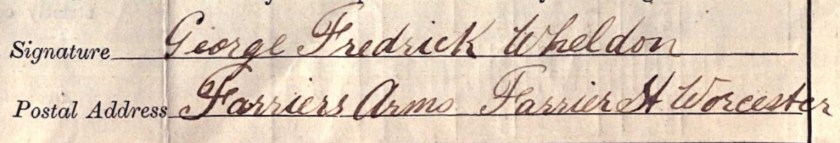 Signature George Fredrick Wheldon
Postal Address Farriers Arms Farrier St Worcester